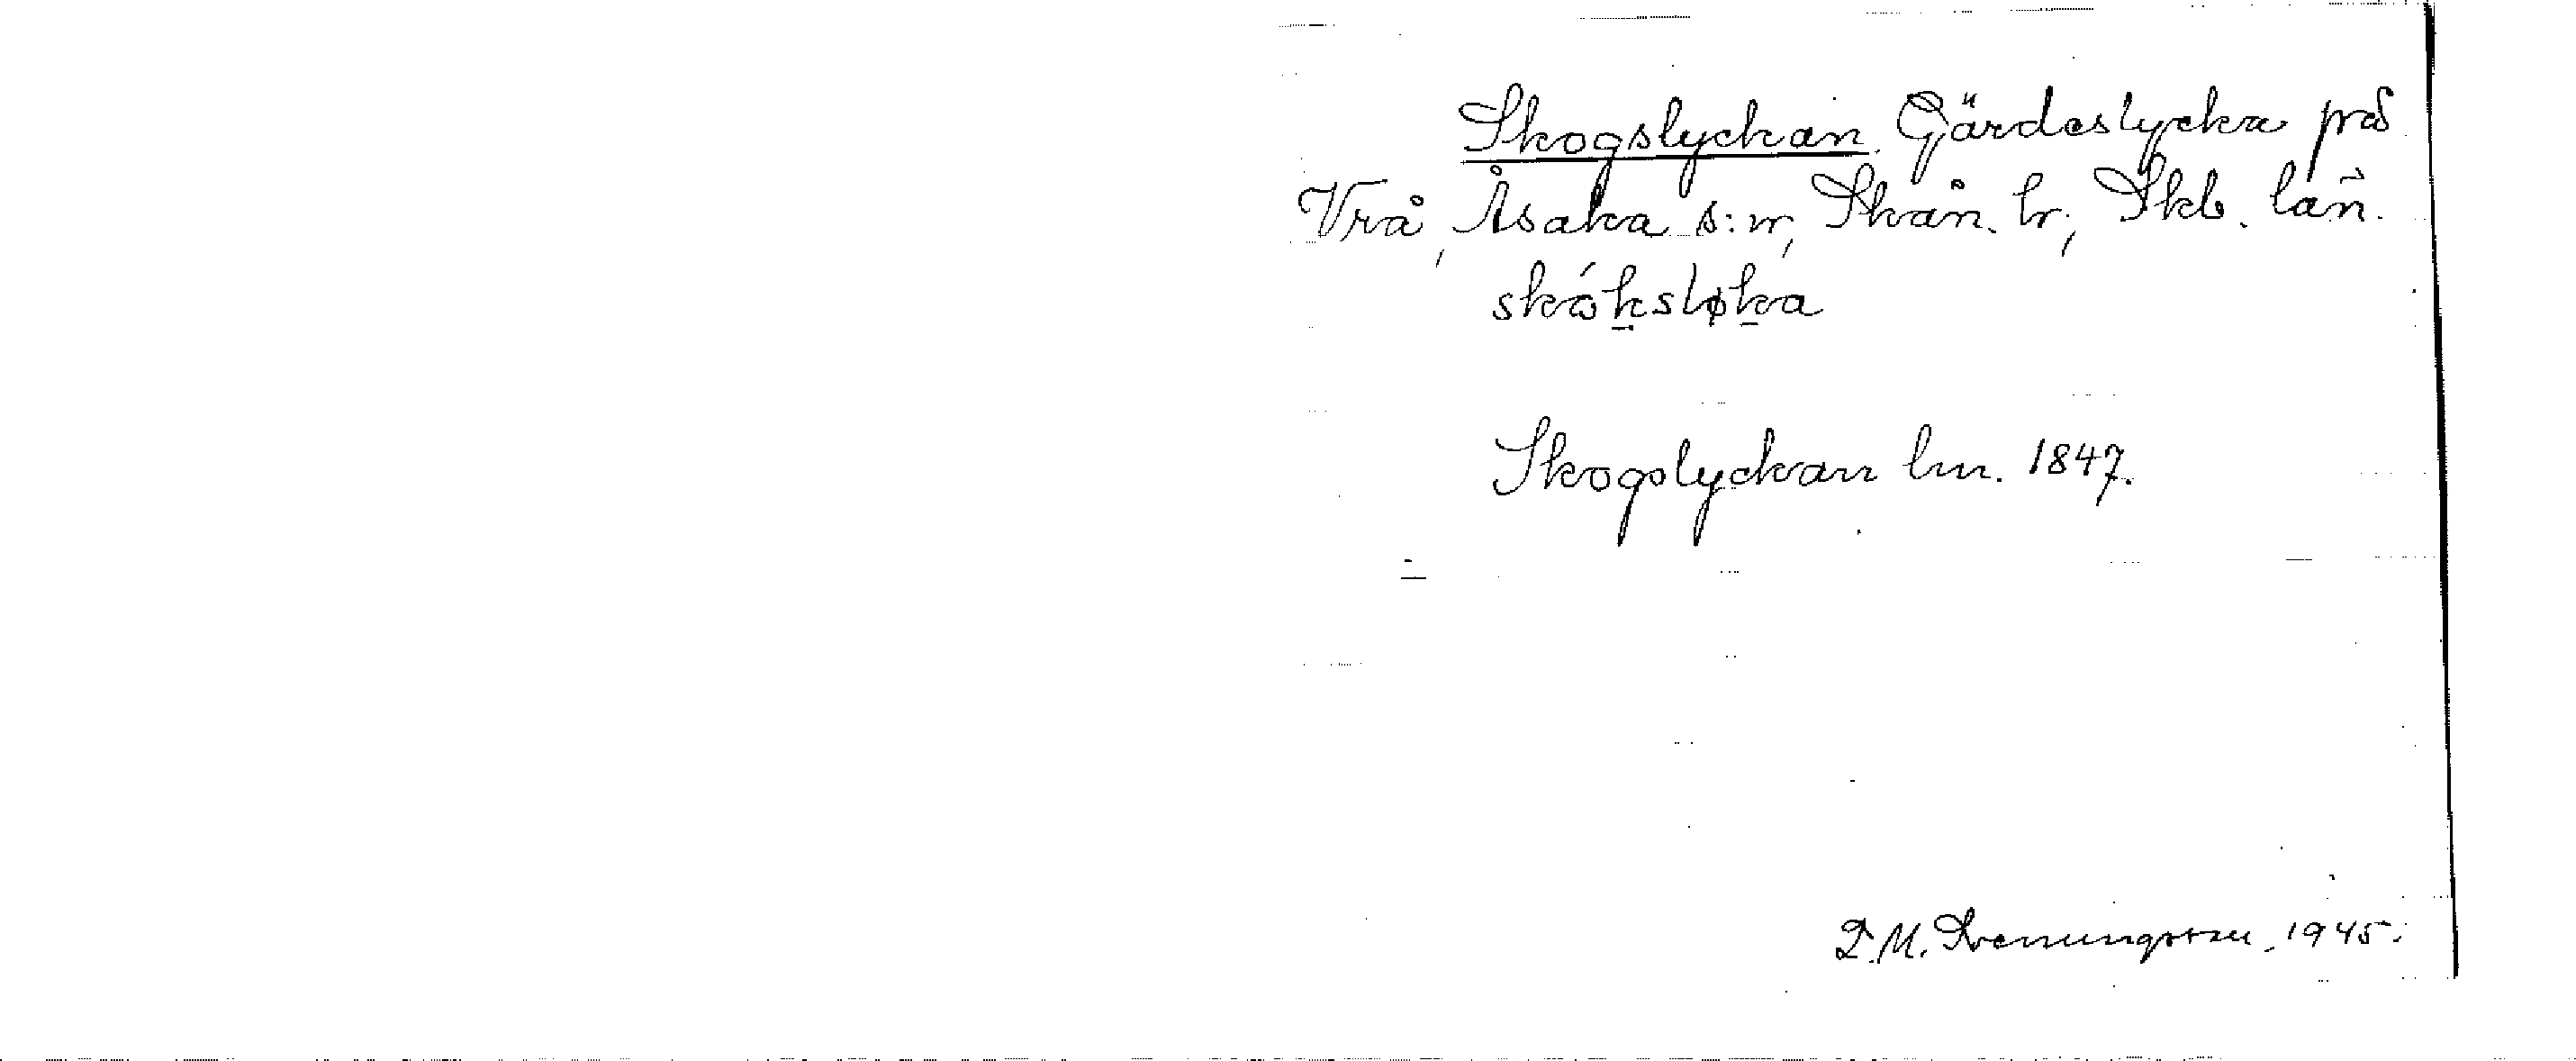 Skogslyckan. Gärdeslycka på
Vrå, Åsaka s:n, Skån. hr, Skb. län.
skóksløka
Skogslyckan lm. 1847.
1945.